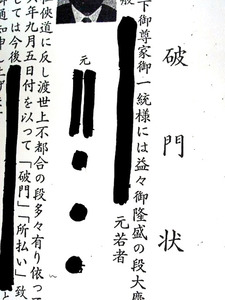 破門状
下御尊家御一統様には益々御隆盛の段大慶
元若者
元
任侠道に反し渡世上不都合の段多々有り依っ
六年九月五日付を以って「破門」「所払い」致
しては今後
御通知申し上げます